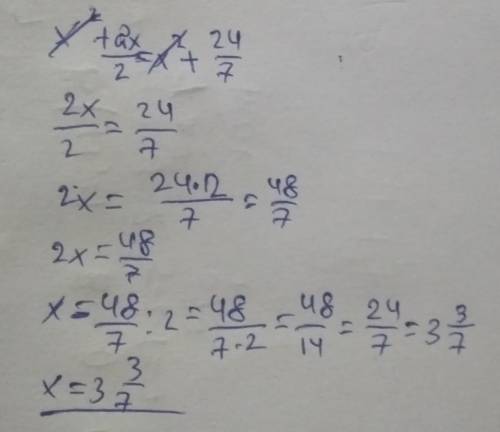 x² + 2x/2 = x² + 24/7
2x/2 = 24/7
2x = 24·2/7 = 48/7
2x = 48/7
x = 48/7 : 2 = 48/7·2 = 48/14 = 24/7 = 3 3/7
x = 3 3/7